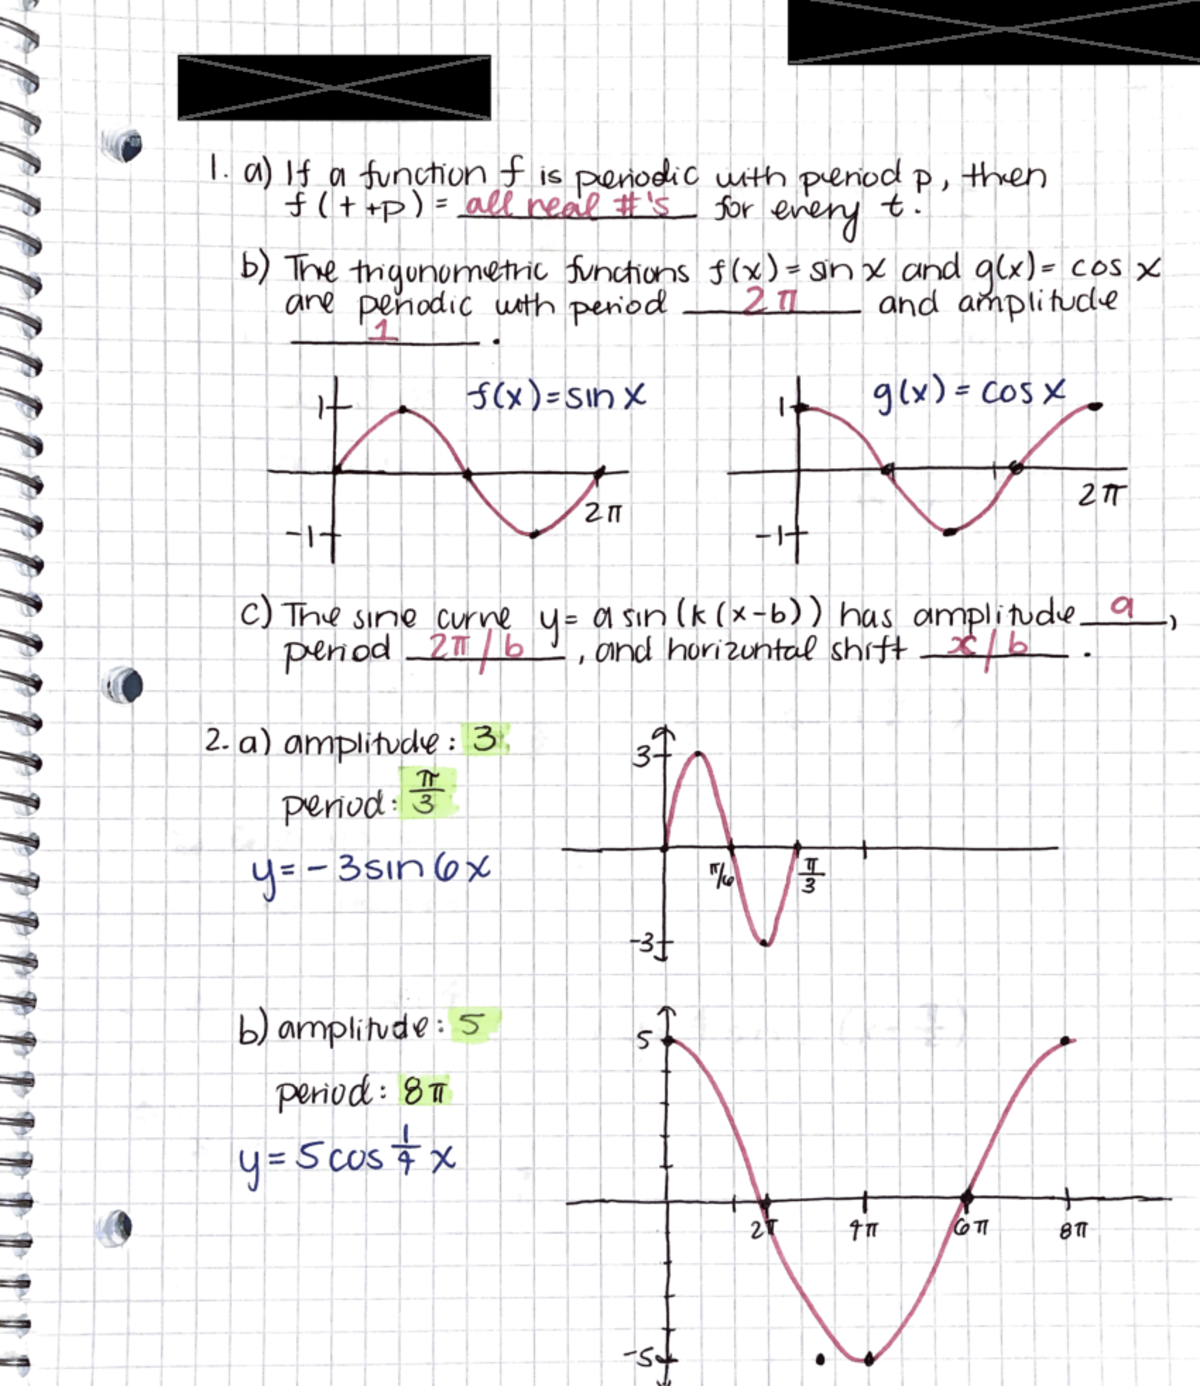 1. a) If a function f is periodic with period p, then
f(t+p) = all real #'s for every t.
b) The trigonometric functions f(x) = sin x and g(x) = cos x
are periodic with period 2π and amplitude
1.
1 f(x) = sin x
2π
-1
1 g(x) = cos x
2π
-1
c) The sine curve y = a sin(k(x-b)) has amplitude a,
period 2π/b, and horizontal shift x/b.
2. a) amplitude: 3
period: π/3
y = -3 sin 6x
3
π/6 π/3
-3
b) amplitude: 5
period: 8π
y = 5 cos 1/4 x
5
2π 4π 6π 8π
-5